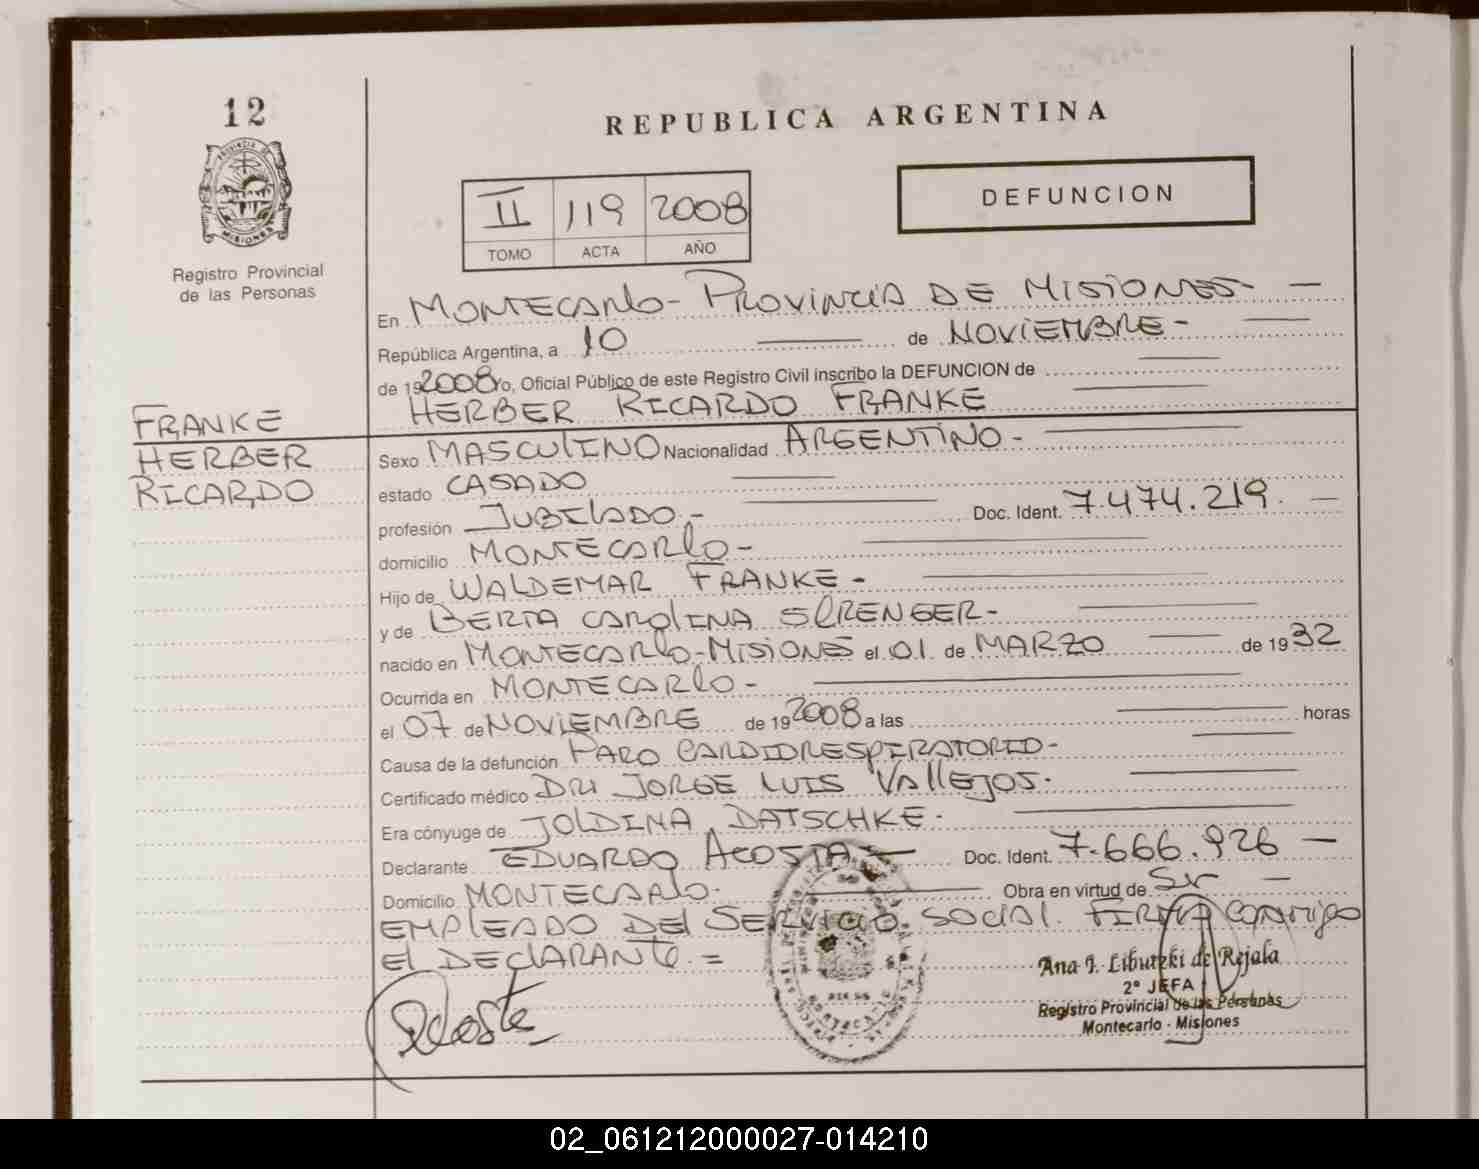 12
REPUBLICA ARGENTINA
DEFUNCION
II 119 2008
TOMO ACTA AÑO
PROVINCIA DE
MISIONES
Registro Provincial
de las Personas
En MONTECARLO - PROVINCIA DE MISIONES -
República Argentina, a 10 de NOVIEMBRE -
de 192008 Yo, Oficial Público de este Registro Civil inscribo la DEFUNCION de
HERBER RICARDO FRANKE
FRANKE
HERBER
RICARDO
Sexo MASCULINO Nacionalidad ARGENTINO -
estado CASADO
profesión JUBILADO - Doc. Ident. 7.474.219 -
domicilio MONTECARLO -
Hijo de WALDEMAR FRANKE -
y de BERTA CAROLINA SPRENGER -
nacido en MONTECARLO - MISIONES el 01 de MARZO de 1932
Ocurrida en MONTECARLO -
el 07 de NOVIEMBRE de 192008 a las horas
Causa de la defunción PARO CARDIORESPIRATORIO -
Certificado médico DR. JORGE LUIS VALLEJOS.
Era cónyuge de JOLDINA DATSCHKE.
Declarante EDUARDO ACOSTA - Doc. Ident. 7.666.926 -
Domicilio MONTECARLO. Obra en virtud de Sr -
EMPLEADO DEL SERVICIO SOCIAL. FIRMA CONMIGO
El DECLARANTE. =
Acosta
Ana I. Libutzki de Rejala
2º JEFA
Registro Provincial de las Personas
Montecarlo - Misiones
02_061212000027-014210